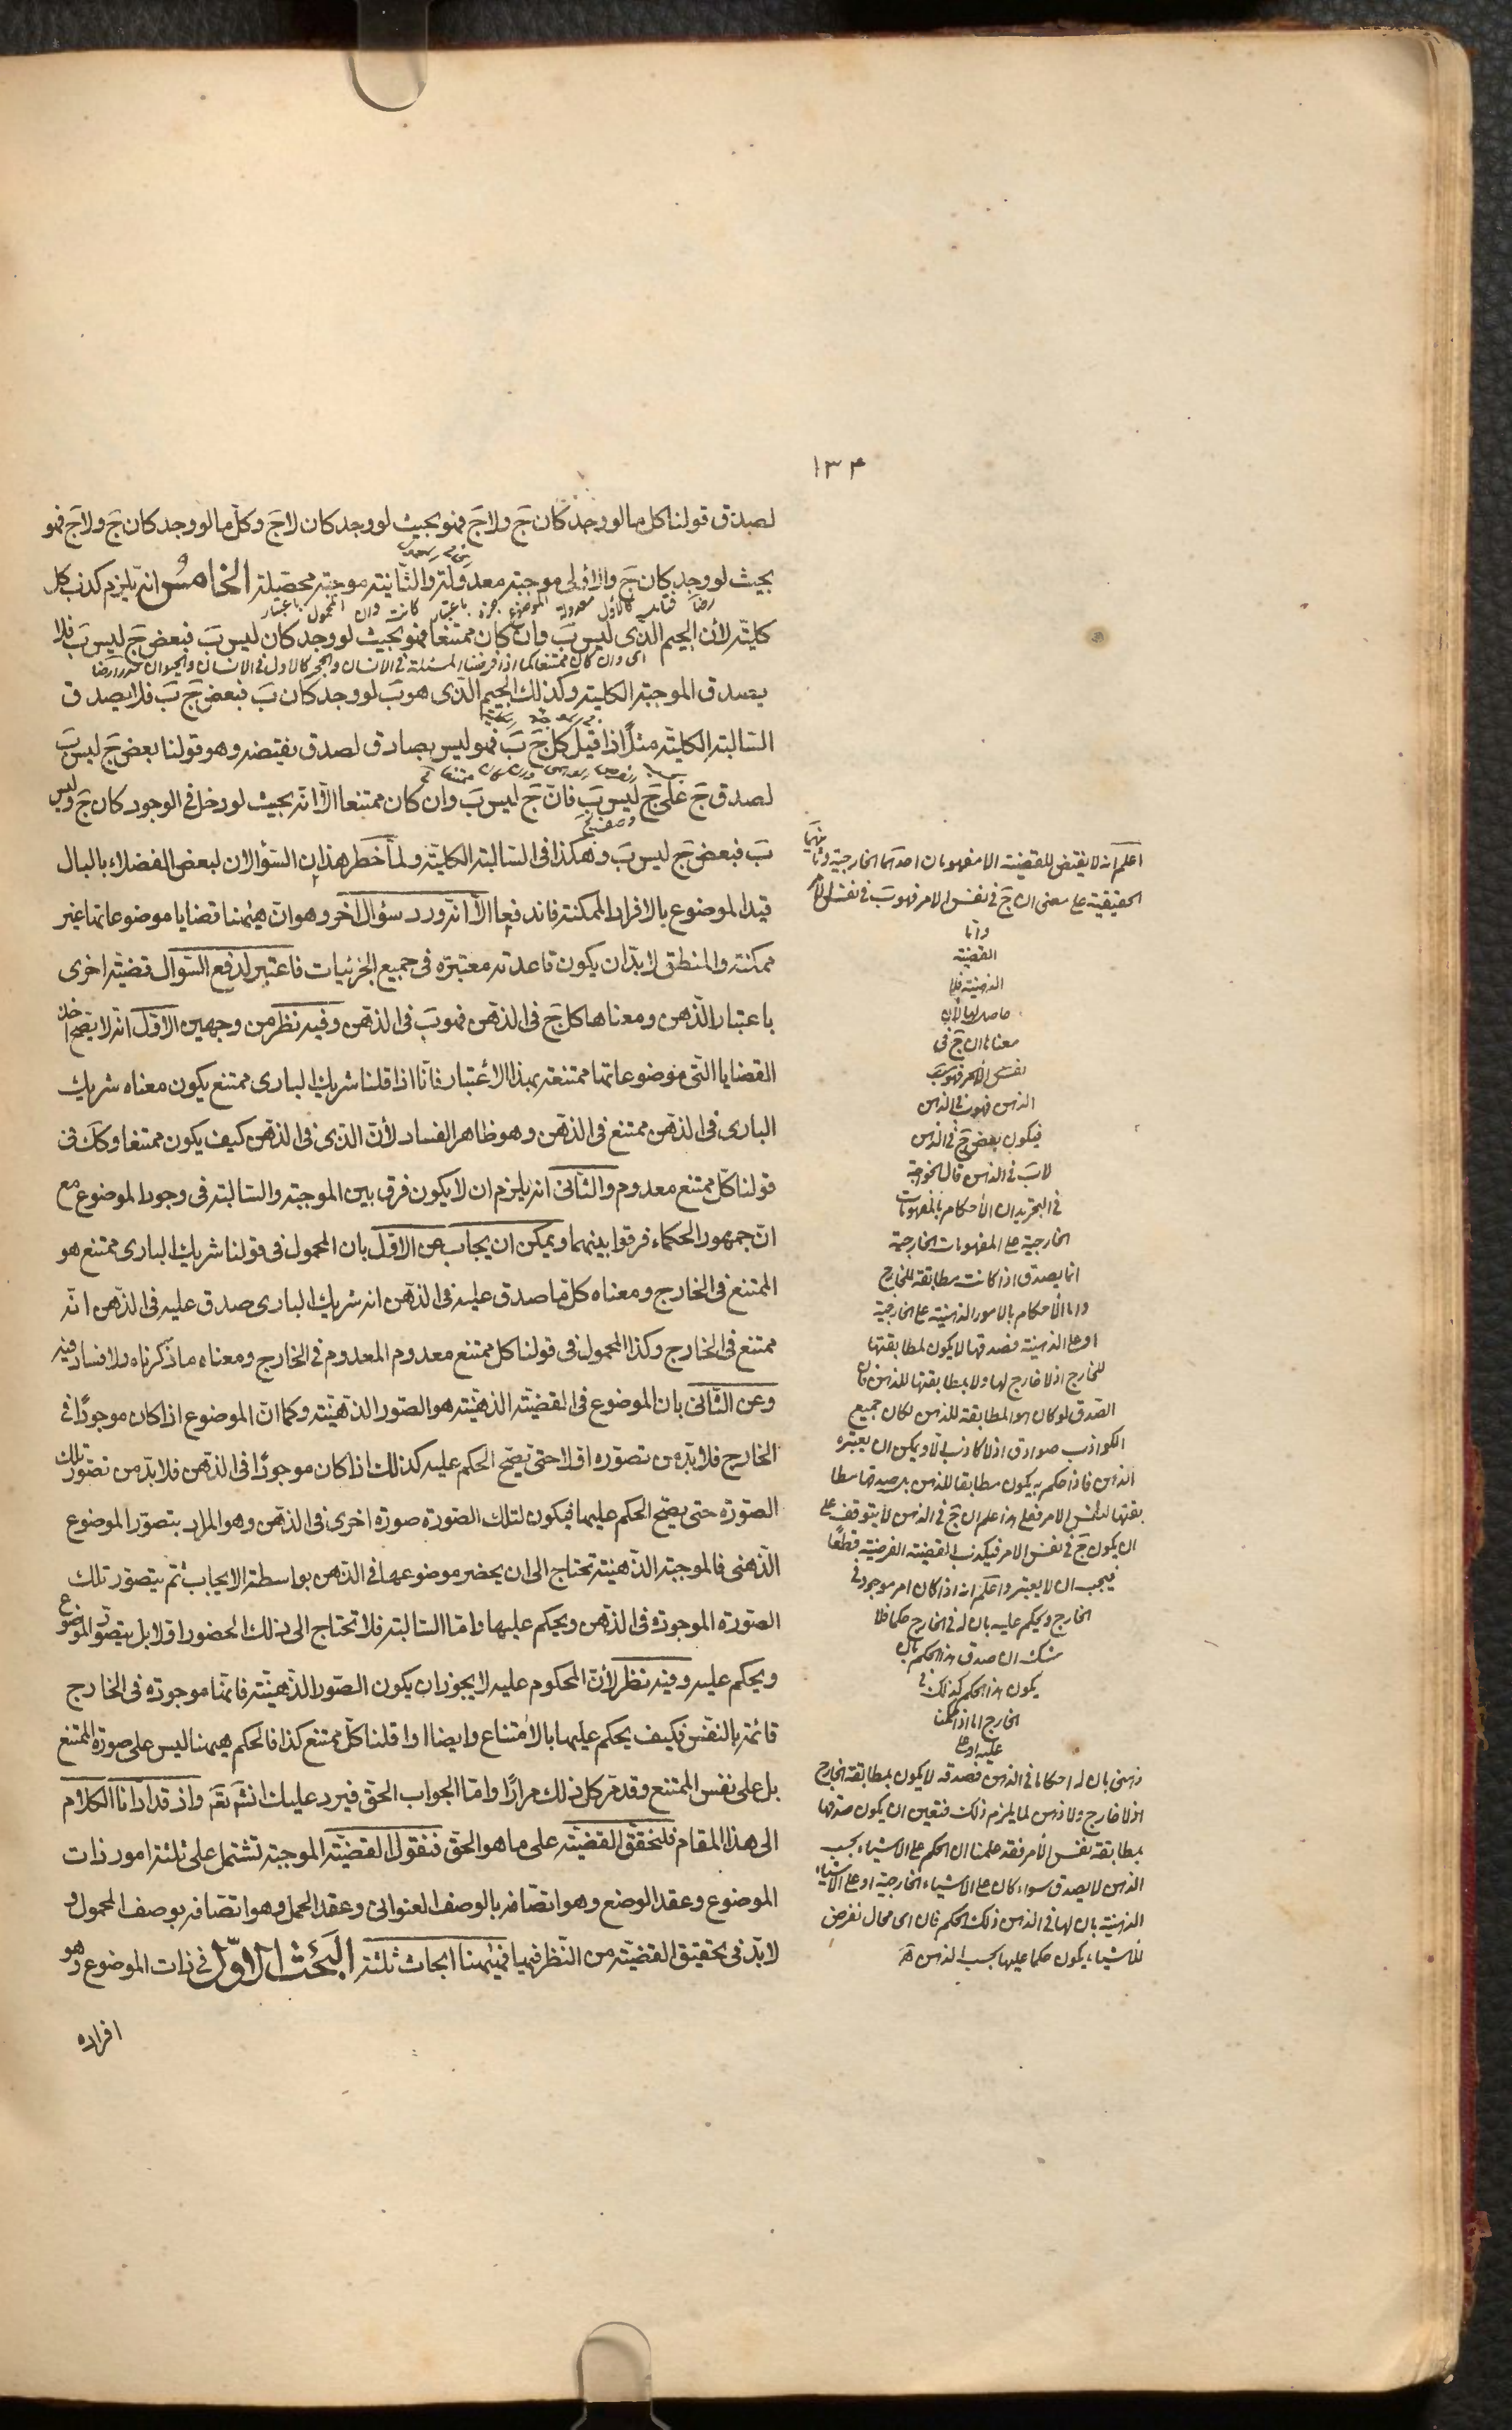 ١٣۴
لصدق قولنا كل ما لو وجد كان جَ ولاجَ فهو بحيث لو وجد كان لاجَ وكل ما لو وجد كان جَ ولاجَ فهو
بحيث لو وجد كان جَ والاولى موجبة معدولة والثانية موجبة محصلة الخامس انه يلزم كذب كل
كلية لان الجيم الذى ليس بَ وان كان ممتنعا فهو بحيث لو وجد كان ليس بَ فبعض جَ ليس بَ فلا
يصدق الموجبة الكلية وكذلك الجيم الذى هو بَ لو وجد كان بَ فبعض جَ بَ فلا يصدق
السالبة الكلية مثلا اذا قيل كل جَ بَ فهو ليس بصادق لصدق نقيضه وهو قولنا بعض جَ ليس بَ
لصدق جَ على جَ ليس بَ فان جَ ليس بَ وان كان ممتنعا الا انه بحيث لو دخل فى الوجود كان جَ وليس
بَ فبعض جَ ليس بَ وهكذا فى السالبة الكلية ولما خطر هذان السؤالان لبعض الفضلاء بالبال
قيد الموضوع بالافراد الممكنة فاندفعا الا انه ورد سؤال آخر وهو ان هيهنا قضايا موضوعاتها غير
ممكنة والمنطق لابد ان يكون قاعدته معتبرة فى جميع الجزئيات فاعتبر لدفع السؤال قضية اخرى
باعتبار الذهن ومعناها كل جَ فى الذهن فهو بَ فى الذهن وفيه نظر من وجهين الاول انه لا يصح اخذ
القضايا التى موضوعاتها ممتنعة بهذا الاعتبار فانا اذا قلنا شريك البارى ممتنع يكون معناه شريك
البارى فى الذهن ممتنع فى الذهن وهو ظاهر الفساد لأن الذى فى الذهن كيف يكون ممتنعا وكك فى
قولنا كل ممتنع معدوم والثانى انه يلزم ان لا يكون فرق بين الموجبة والسالبة فى وجود الموضوع مع
ان جمهور الحكماء فرقوا بينهما ويمكن ان يجاب عن الاول بان المحمول فى قولنا شريك البارى ممتنع هو
الممتنع فى الخارج ومعناه كل ما صدق عليه فى الذهن انه شريك البارى صدق عليه فى الذهن انه
ممتنع فى الخارج وكذا المحمول فى قولنا كل ممتنع معدوم المعدوم فى الخارج ومعناه ما ذكرناه ولا فساد فيه
وعن الثانى بان الموضوع فى القضية الذهنية هو الصور الذهنية وكما ان الموضوع اذا كان موجودا فى
الخارج فلابد من تصوره اولا حتى يصح الحكم عليه كذلك اذا كان موجودا فى الذهن فلابد من تصور تلك
الصورة حتى يصح الحكم عليها فيكون لتلك الصورة صورة اخرى فى الذهن وهو المراد بتصور الموضوع
الذهنى فالموجبة الذهنية تحتاج الى ان يحضر موضوعها فى الذهن بواسطة الايجاب ثم يتصور تلك
الصورة الموجودة فى الذهن ويحكم عليها واما السالبة فلا تحتاج الى ذلك الحضور اولا بل يتصور الموضوع
ويحكم عليه وفيه نظر لأن المحكوم عليه لا يجوز ان يكون الصور الذهنية فانها موجودة فى الخارج
قائمة بالنفس فكيف يحكم عليها بالامتناع وايضا اذا قلنا كل ممتنع كذا فالحكم هيهنا ليس على صورة الممتنع
بل على نفس الممتنع وقد مر كل ذلك مرارا واما الجواب الحق فيرد عليك انش تع واذ قد ادانا الكلام
الى هذا المقام فلنحقق القضية على ما هو الحق فنقول القضية الموجبة تشتمل على ثلثة امور ذات
الموضوع وعقد الوضع وهو اتصافه بالوصف العنوانى وعقد الحمل وهو اتصافه بوصف المحمول و
لابد فى تحقيق القضية من النظر فيها فهيهنا ابحاث ثلثة البحث الاول فى ذات الموضوع وهو
افراده
اعلم انه لا يقتض للقضية الا مفهومان احدهما الخارجية وثانيهما
الحقيقية على معنى ان جَ فى نفس الامر فهو بَ فى نفس الامر
واما
القضية
الذهنية فلا
حاصل لها لان
معناها ان جَ فى
نفس الامر فهو بَ
الذهن فهو بَ فى الذهن
فيكون بعض جَ فى الذهن
لا بَ فى الذهن قال الخواجة
فى التجريد ان الأحكام بالمفهومات
الخارجية على المفهومات الخارجية
انما يصدق اذا كانت مطابقة للخارج
واما الاحكام بالامور الذهنية على الخارجية
او على الذهنية فصدقها لا يكون لمطابقتها
للخارج اذ لا خارج لها ولا بمطابقتها للذهن فان
الصدق لو كان هو المطابقة للذهن لكان جميع
الكواذب صوادق اذ لا كاذب الا ويمكن ان يعتبره
الذهن فاذا حكم به يكون مطابقا للذهن بل صدقها مطا
بقتها لنفس الامر فعلى هذا علم ان جَ فى الذهن لا يتوقف على
ان يكون جَ فى نفس الامر فيكذب القضية الفرضية قطعا
فيجب ان لا يعتبر واعلم انه اذا كان امر موجود فى
الخارج ويحكم عليه بان له فى الخارج حكما فلا
شك ان صدق هذا الحكم بان
يكون هذا الحكم كذلك فى
الخارج اما اذا حكمنا
عليه او على
ذهنى بان له احكاما فى الذهن فصدقه لا يكون بمطابقة الخارج
اذ لا خارج ولا ذهن لما يلزم ذلك فتعين ان يكون صدقها
بمطابقة نفس الأمر فقد علمنا ان الحكم على الاشياء بحسب
الذهن لا يصدق سواء كان على الاشياء الخارجية او على الاشياء
الذهنية بان لها فى الذهن ذلك الحكم فان اى محال نفرض
للاشياء يكون حكما عليها بحسب الذهن